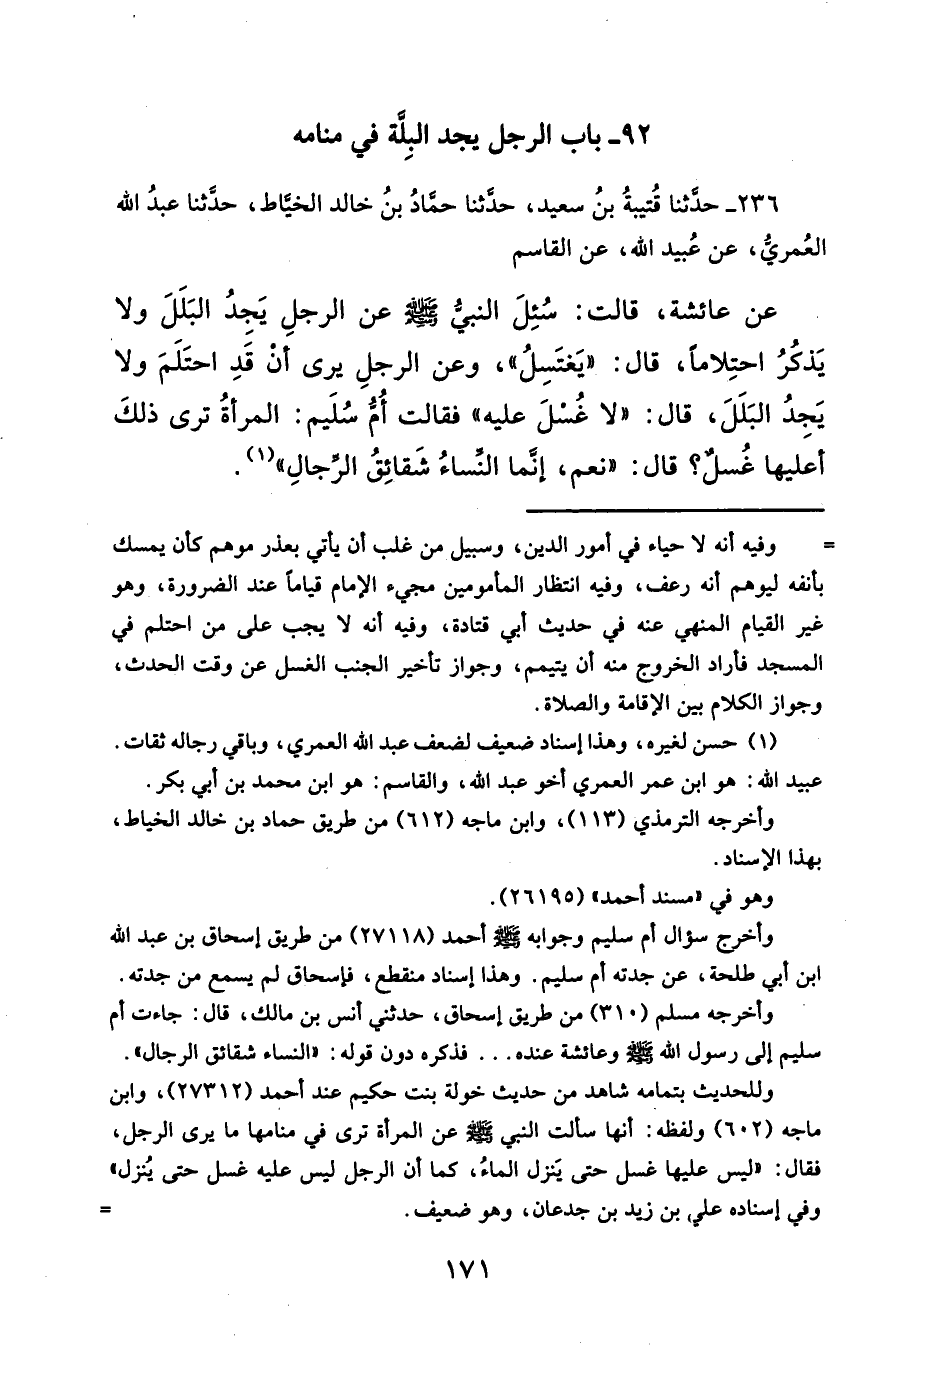 ٩٢ـ باب الرجل يجد البِلَّة في منامه
٢٣٦ـ حدَّثنا قُتيبةُ بنُ سعيد، حدَّثنا حمَّادُ بنُ خالد الخيَّاط، حدَّثنا عبدُ الله
العُمريُّ، عن عُبيد الله، عن القاسم
عن عائشة، قالت: سُئِلَ النبيُّ ﷺ عن الرجلِ يَجِدُ البَلَلَ ولا
يَذكُرُ احتِلاماً، قال: «يَغتَسِلُ»، وعن الرجلِ يرى أنْ قَدِ احتَلَمَ ولا
يَجِدُ البَلَلَ، قال: «لا غُسْلَ عليه» فقالت أُمُّ سُلَيم: المرأةُ ترى ذلكَ
أعليها غُسلٌ؟ قال: «نعم، إنَّما النِّساءُ شَقائِقُ الرِّجالِ»(١).
= وفيه أنه لا حياء في أمور الدين، وسبيل من غلب أن يأتي بعذر موهم كأن يمسك
بأنفه ليوهم أنه رعف، وفيه انتظار المأمومين مجيء الإمام قياماً عند الضرورة، وهو
غير القيام المنهي عنه في حديث أبي قتادة، وفيه أنه لا يجب على من احتلم في
المسجد فأراد الخروج منه أن يتيمم، وجواز تأخير الجنب الغسل عن وقت الحدث،
وجواز الكلام بين الإقامة والصلاة.
(١) حسن لغيره، وهذا إسناد ضعيف لضعف عبد الله العمري، وباقي رجاله ثقات.
عبيد الله: هو ابن عمر العمري أخو عبد الله، والقاسم: هو ابن محمد بن أبي بكر.
وأخرجه الترمذي (١١٣)، وابن ماجه (٦١٢) من طريق حماد بن خالد الخياط،
بهذا الإسناد.
وهو في «مسند أحمد» (٢٦١٩٥).
وأخرج سؤال أم سليم وجوابه ﷺ أحمد (٢٧١١٨) من طريق إسحاق بن عبد الله
ابن أبي طلحة، عن جدته أم سليم. وهذا إسناد منقطع، فإسحاق لم يسمع من جدته.
وأخرجه مسلم (٣١٠) من طريق إسحاق، حدثني أنس بن مالك، قال: جاءت أم
سليم إلى رسول الله ﷺ وعائشة عنده... فذكره دون قوله: «النساء شقائق الرجال».
وللحديث بتمامه شاهد من حديث خولة بنت حكيم عند أحمد (٢٧٣١٢)، وابن
ماجه (٦٠٢) ولفظه: أنها سألت النبي ﷺ عن المرأة ترى في منامها ما يرى الرجل،
فقال: «ليس عليها غسل حتى يَنزل الماءُ، كما أن الرجل ليس عليه غسل حتى يُنزل»
وفي إسناده علي بن زيد بن جدعان، وهو ضعيف. =
١٧١